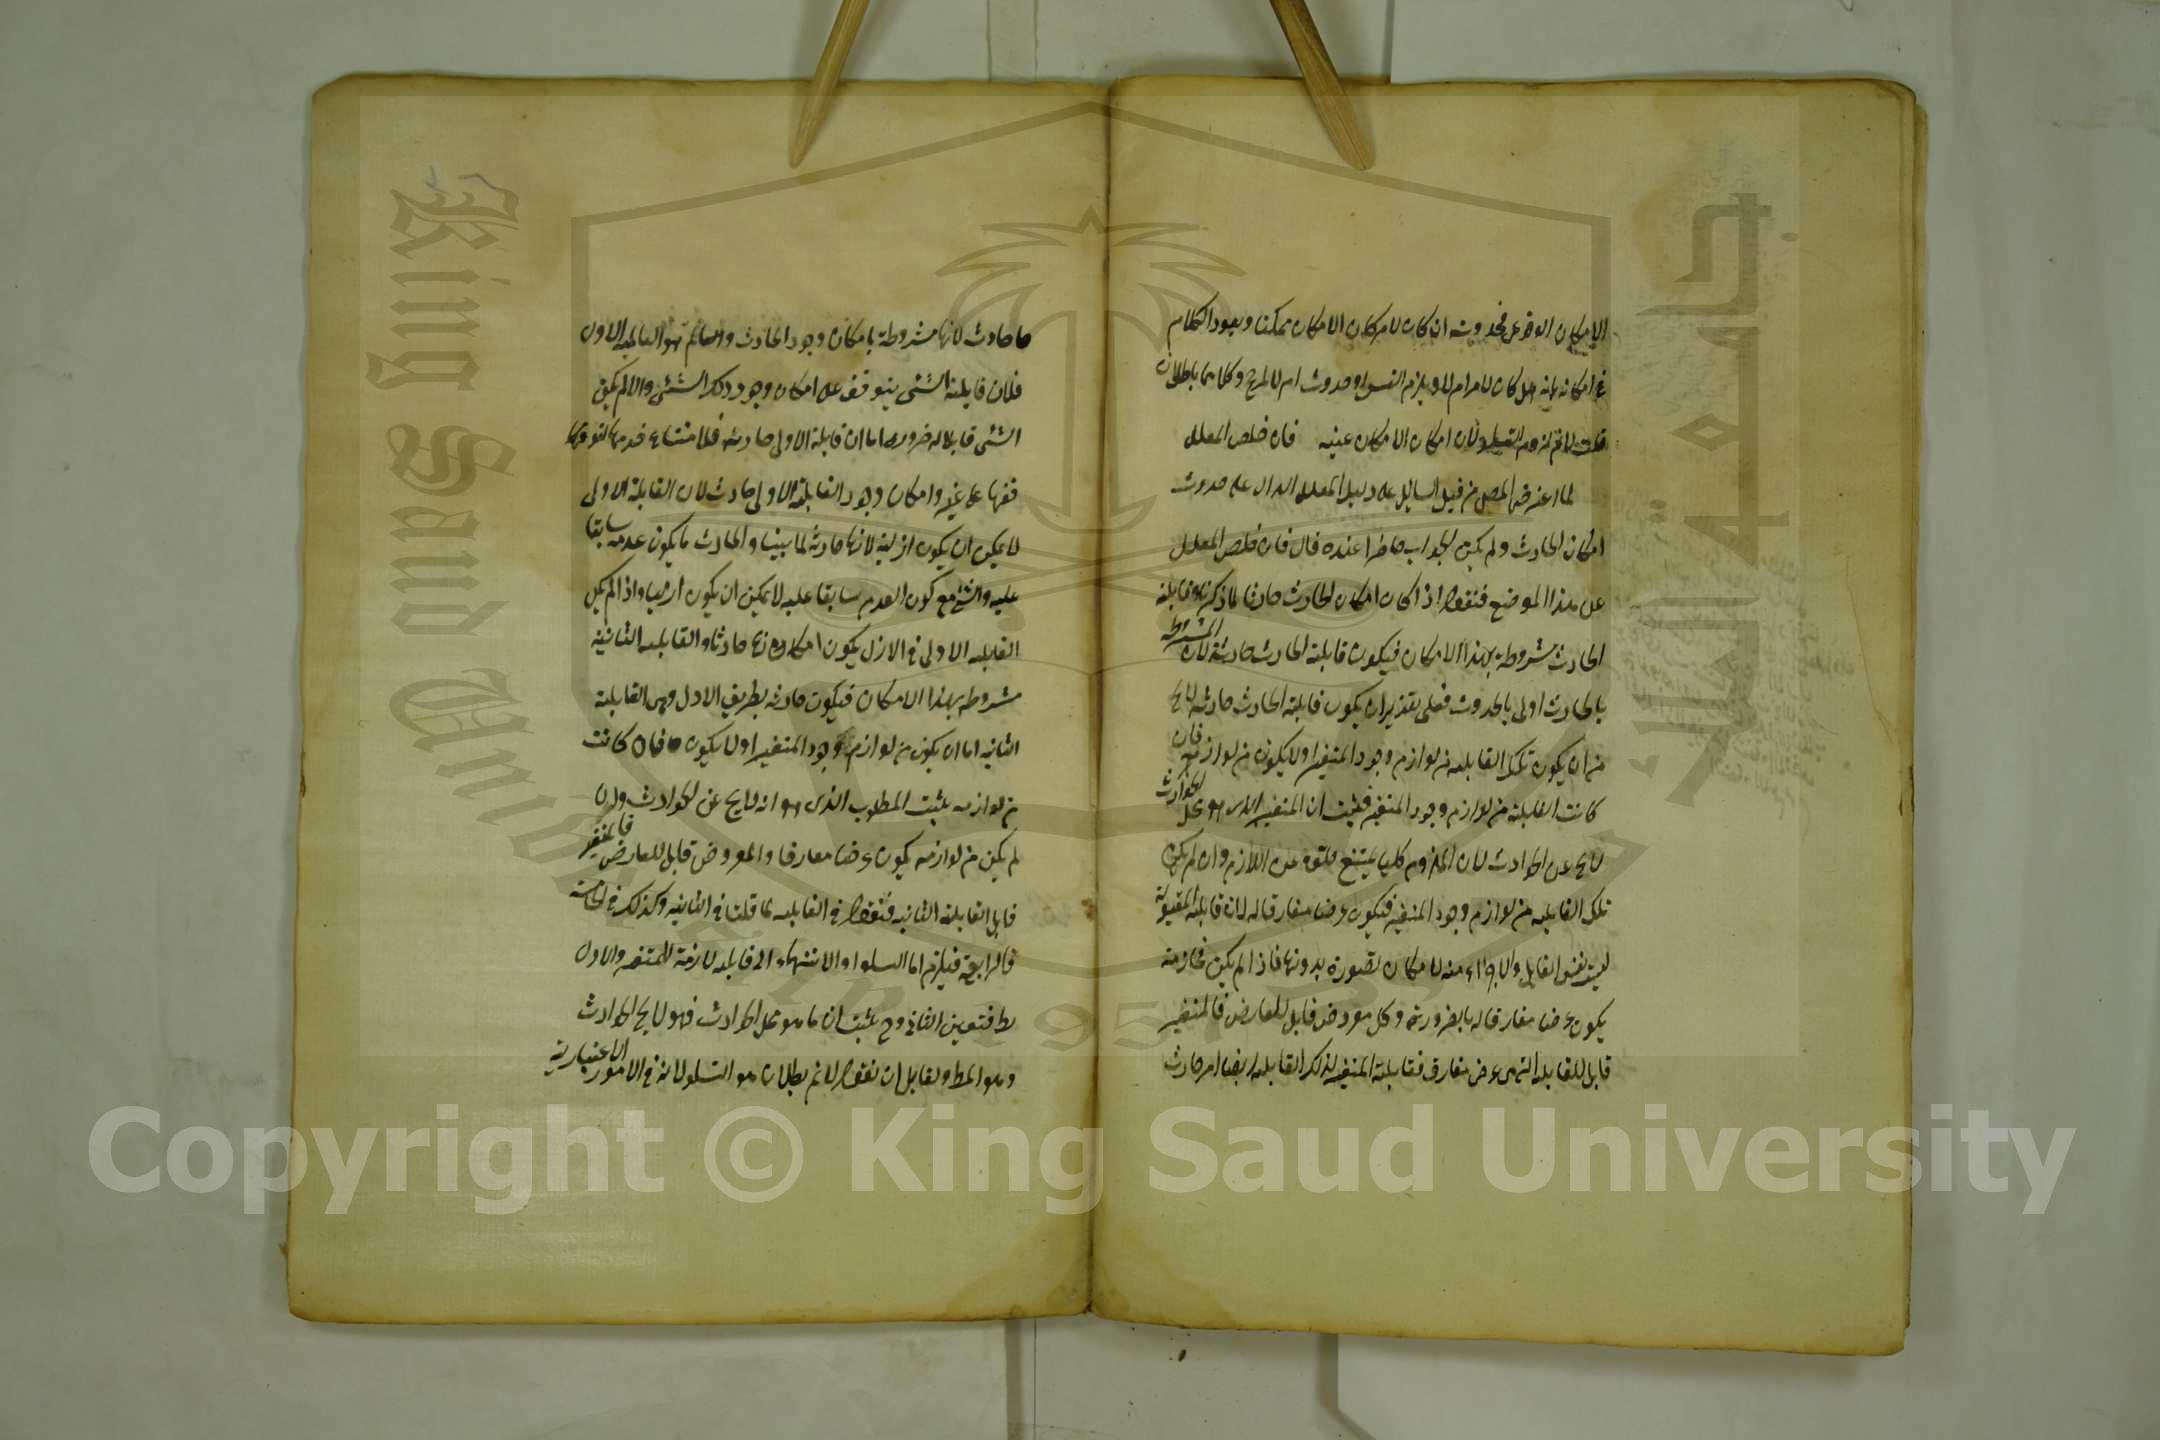 الامكان الذي فرض حدوثه ان كان لامكان الامكان ممكنا ويعود الكلام
في امكانه بانه هل كان لامر ام لا ويلزم التسلسل او حدوث امر لا لمرجح وكلاهما باطلان
قلت لا نم لزوم التسلسل لان امكان الامكان عينه فان خلص المعلل
لما اعترض المص من قبل السايل على دليل المعلل الدال على حدوث
امكان الحادث ولم يكن الجواب حاضرا عنده قال فان خلص المعلل
عن هذا الموضع فنقول اذا كان امكان الحادث حادثا لما ذكرنا وقابلية
الحادث مشروطة بهذا الامكان فيكون قابلية الحادث حادثة لان المشروط
بالحادث اولى بالحدوث فعلى تقدير ان يكون قابلية الحادث حادثة لا يخ
من ان يكون تلك القابلية من لوازم وجود المتغير او لا يكون من لوازمه فان
كانت القابلية من لوازم وجود المتغير فيثبت ان المتغير الذي هو محل الحوادث
لا يخ عن الحوادث لان الملزوم كليا يمتنع خلوه عن اللازم وان لم يكن
تلك القابلية من لوازم وجود المتغير فيكون عرضا مفارقا له لان قابلية المقبول
ليست نفس القابل ولا جزء منه لامكان تصوره بدونها فاذا لم يكن لازمة
يكون عرضا مفارقا له بالضرورة وكل معروض قابل للعارض فالمتغير
قابل للقابلية التي هي عرض مفارق فقابلية المتغير لذلك القابلية ايضا امر حادث
حادث لانها مشروطة بامكان وجود الحادث والعالم هو القابلية الاولى
فلان قابلية الشئ يتوقف على امكان وجود ذلك الشئ والا لم يكن
الشئ قابلا له ضرورة اما ان قابلية الاولى حادثة فلامتناع قدمها لتوقفها
على غير وامكان وجود القابلية الاولى حادث لان القابلية الاولى
لا يمكن ان يكون ازلية لانها حادثة لما بينا والحادث ما يكون عدمه سابقا
عليه والشئ مع كون العدم سابقا عليه لا يمكن ان يكون ازليا واذا لم يكن
القابلية الاولى في الازل يكون امكانها حادثا والقابلية الثانية
مشروطة بهذا الامكان فيكون حادثة بطريق الاولى وهي القابلية
الثانية اما ان يكون من لوازم وجود المتغير او لا يكون فان كانت
من لوازمه يثبت المطلوب الذي هو انه لا يخ عن الحوادث وان
لم يكن من لوازمه يكون عرضا مفارقا والمعروض قابل للعارض فالمتغير
قابل لقابلية الثانية فنقول في القابلية كما قلنا في الثانية وكذلك في الخامسة
فالرابعة فيلزم اما التسلسل او الانتهاء الى قابلية لازمة للمتغير والاول
بط فتعين الثاني وح يثبت ان ما هو محل الحوادث فهو لا يخ الحوادث
وهو المط ولقايل ان يقول لا نم بطلان هو التسلسل لانه في الامور الاعتبارية
Copyright © King Saud University